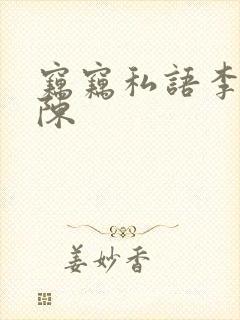 竊竊私語李
陳
姜妙香